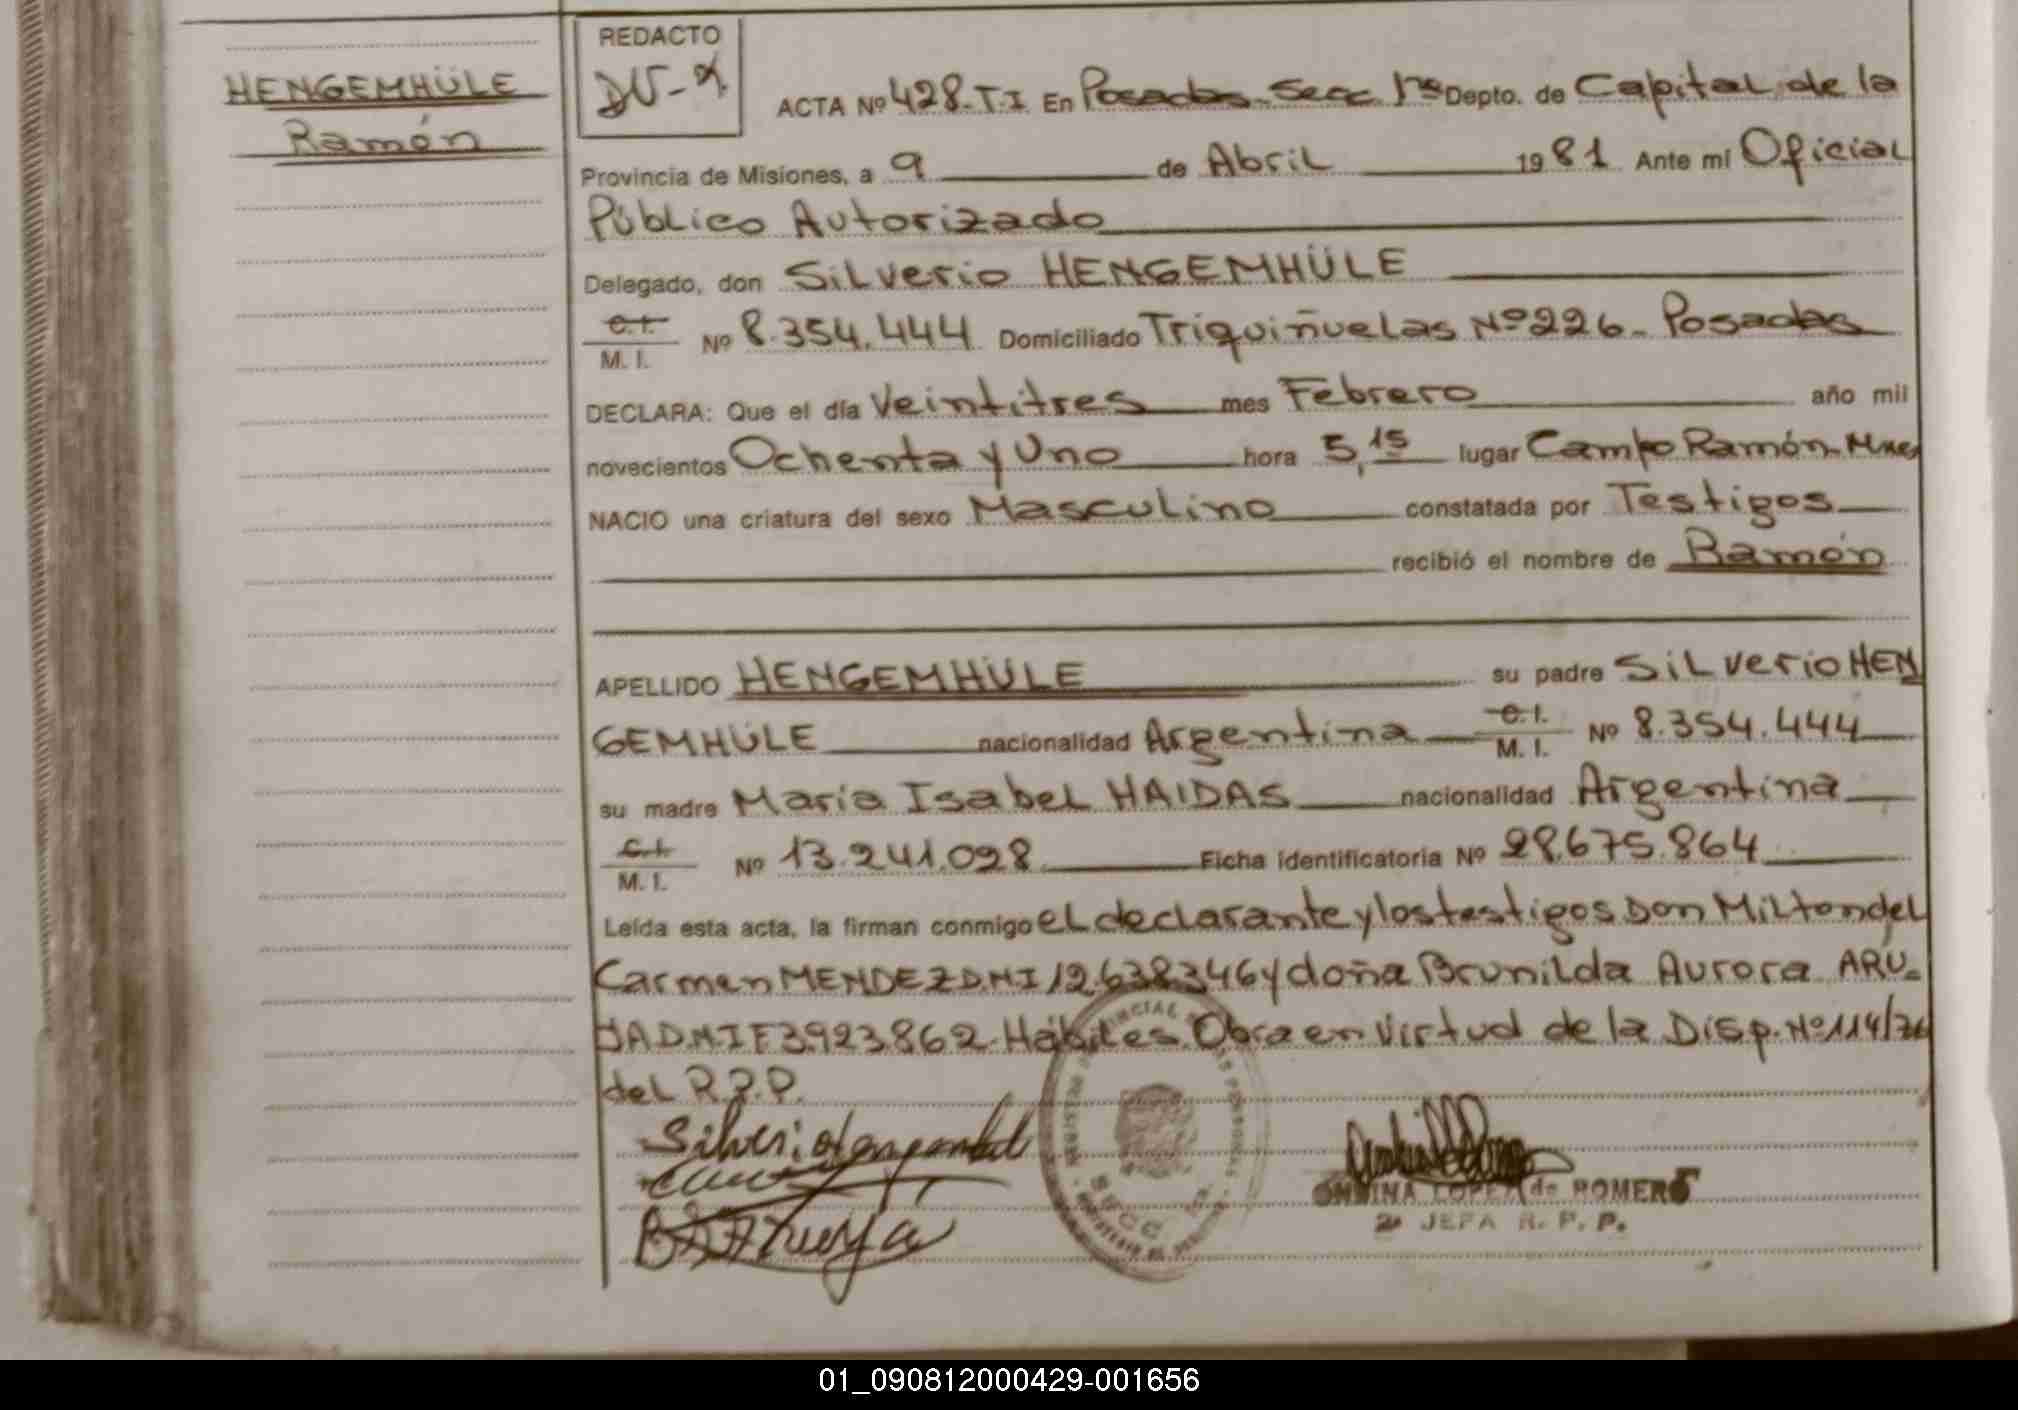 HENGEMHÜLE
Ramón
REDACTO
ACTA Nº 428-T.I. En Posadas-Secc. 1ra Depto. de Capital de la
Provincia de Misiones, a 9 de Abril 1981 Ante mí Oficial
Público Autorizado
Delegado, don Silverio HENGEMHÜLE
C.I.
M. I. Nº 8.354.444 Domiciliado Triquiñuelas Nº 226- Posadas
DECLARA: Que el día Veintitres mes Febrero año mil
novecientos Ochenta y Uno hora 5,15 lugar Campo Ramón-Mnes
NACIO una criatura del sexo Masculino constatada por Testigos
recibió el nombre de Ramón
APELLIDO HENGEMHÜLE su padre Silverio HEN
GEMHÜLE nacionalidad Argentina C.I. M. I. Nº 8.354.444
su madre María Isabel HAIDAS nacionalidad Argentina
C.I.
M. I. Nº 13.241.028 Ficha identificatoria Nº 28.675.864
Leída esta acta, la firman conmigo el declarante y los testigos Don Milton del
Carmen MENDEZ D.N.I 12.638346 y doña Brunilda Aurora ARU-
JA D.N.I F3.923.862- Hábiles. Obra en Virtud de la Disp. Nº 114/76
del R.P.P.
Silverio
ONDINA LOPEZ de ROMERO
2ª JEFA R. P. P.
01_090812000429-001656